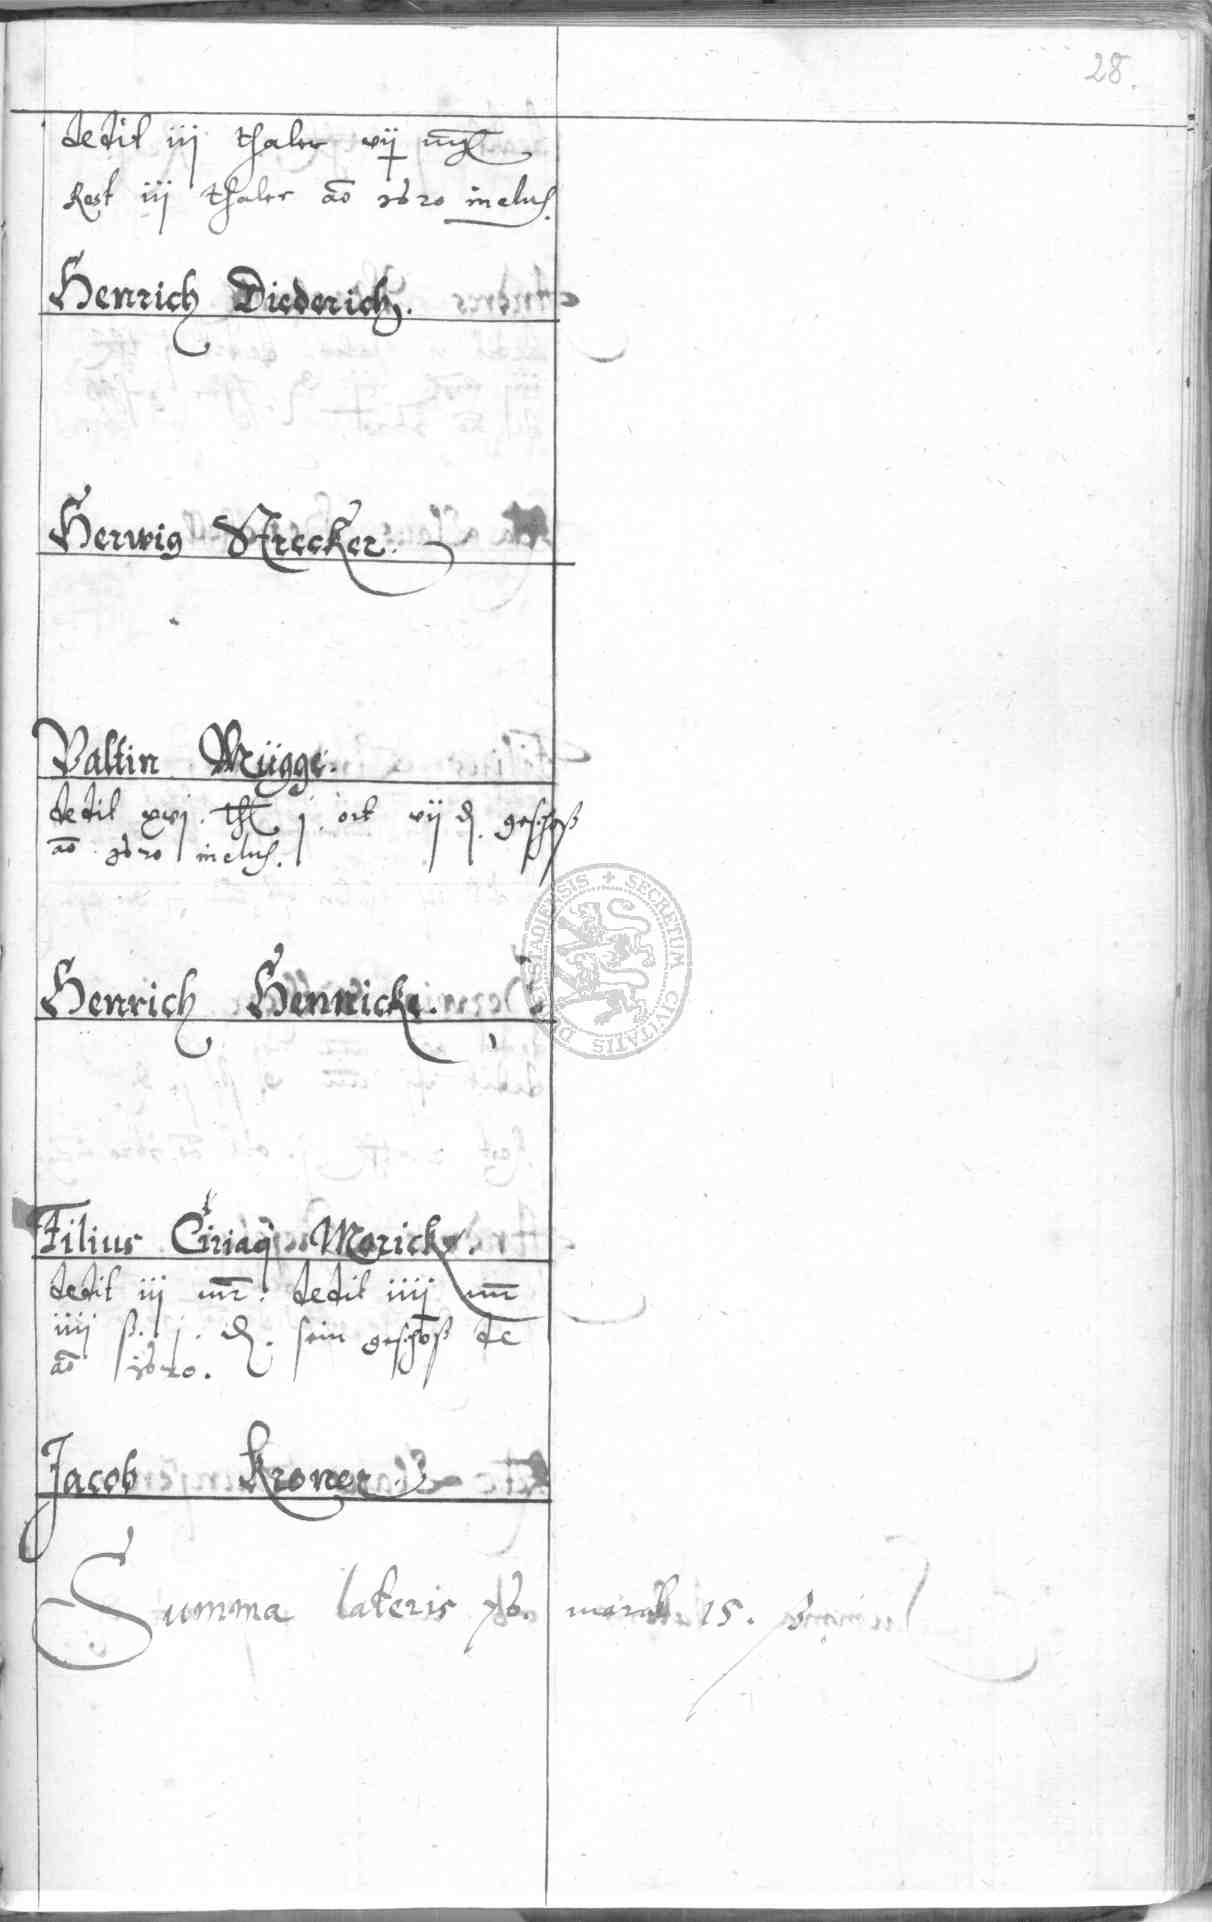 28.
dedit iij thaler vij
Rest iij thaler ao 1620 inclus.
Henrich Diederich.
Herwig Strecker.
Valtin Mügge.
dedit xvj. thl j. ort vij d. geschoß
ao 1620 inclus.
Henrich Hennicke.
Filius Ciriaci Moricke.
dedit iij mr. dedit iiij mr
iiij ß. j. d. sein geschoß de
ao 1620.
Jacob Kroner
Summa lateris 76. marck 15. ß
SECRETUM CIVITATIS